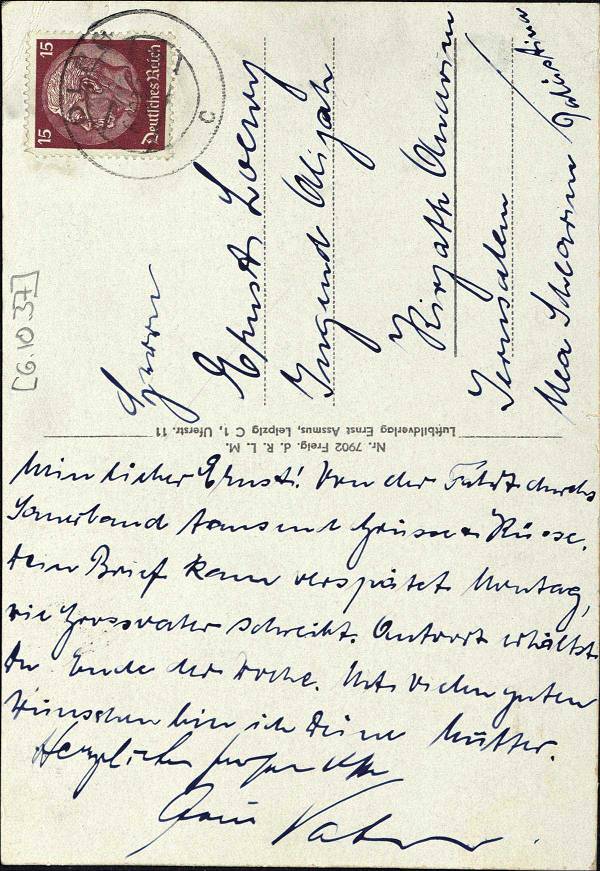 15 15
Deutsches Reich
C
[6.10.37]
Herrn
Ernst Loewy
Jugend Alijah
Kirjath Anavim
Jerusalem
Mea Schearim Palästina
Nr. 7902 Freig. d. R. L. M.
Luftbildverlag Ernst Assmus, Leipzig C 1, Uferstr. 11
Mein lieber Ernst! Von der Fahrt durchs
Sauerland tausend Grüsse & Küsse.
Dein Brief kam verspätet Montag,
wie Grossvater schreibt. Antwort erhältst
Du Ende der Woche. Mit vielen guten
Wünschen bin ich Deine Mutter.
Herzliche
Dein Vater.